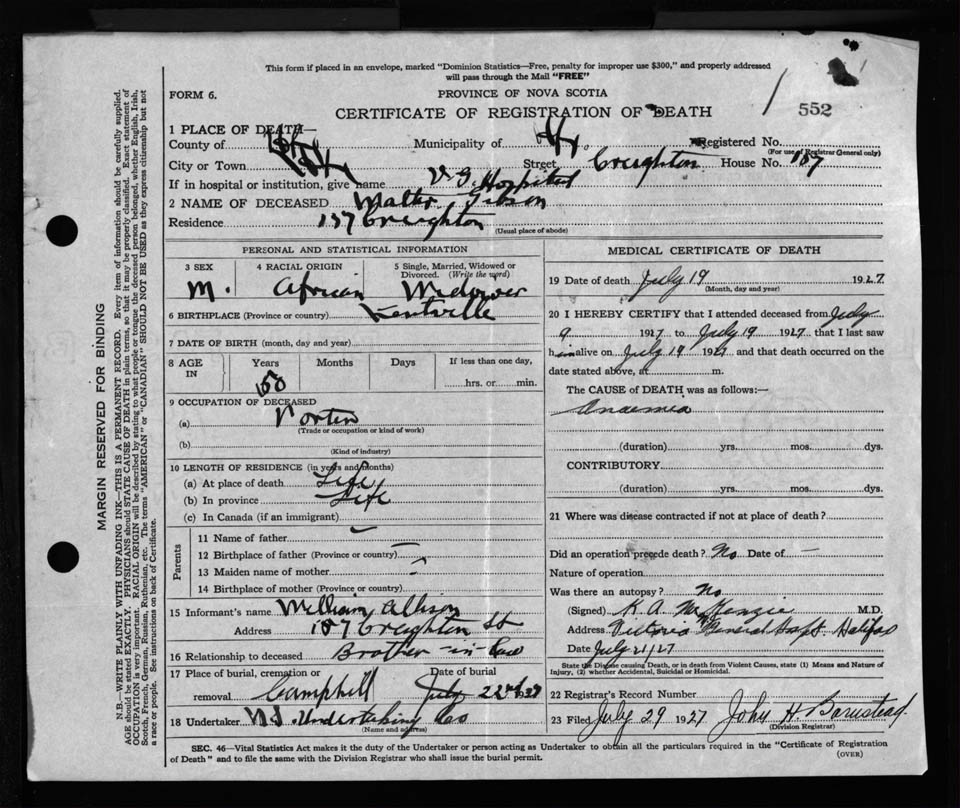 This form if placed in an envelope, marked "Dominion Statistics—Free, penalty for improper use $300," and properly addressed
will pass through the Mail "FREE"
FORM 6.
PROVINCE OF NOVA SCOTIA
552
CERTIFICATE OF REGISTRATION OF DEATH
1 PLACE OF DEATH—
County of Municipality of Registered No.
(For use of Registrar General only)
City or Town Street Creighton House No. 157
If in hospital or institution, give name V. G. Hospital
2 NAME OF DECEASED Walter Gibson
Residence 157 Creighton
(Usual place of abode)
PERSONAL AND STATISTICAL INFORMATION
3 SEX
M.
4 RACIAL ORIGIN
African
5 Single, Married, Widowed or
Divorced. (Write the word)
Widower
6 BIRTHPLACE (Province or country) Kentville
7 DATE OF BIRTH (month, day and year)
8 AGE
IN
Years Months Days If less than one day,
hrs. or min.
9 OCCUPATION OF DECEASED
(a) Porter
(Trade or occupation or kind of work)
(b)
(Kind of industry)
10 LENGTH OF RESIDENCE (in years and months)
(a) At place of death Life
(b) In province Life
(c) In Canada (if an immigrant)
Parents
11 Name of father
12 Birthplace of father (Province or country)
13 Maiden name of mother
14 Birthplace of mother (Province or country)
15 Informant's name William Allison
Address 157 Creighton St
16 Relationship to deceased Brother-in-law
17 Place of burial, cremation or
removal Camphill
Date of burial
July 22nd 1927
18 Undertaker N.S. Undertaking Co
(Name and address)
MEDICAL CERTIFICATE OF DEATH
19 Date of death July 19 1927
(Month, day and year)
20 I HEREBY CERTIFY that I attended deceased from July
9 1927 to July 19 1927 that I last saw
him alive on July 19 1927 and that death occurred on the
date stated above, at m.
The CAUSE of DEATH was as follows:—
Anaemia
(duration) yrs. mos. dys.
CONTRIBUTORY
(duration) yrs. mos. dys.
21 Where was disease contracted if not at place of death?
Did an operation precede death? No Date of —
Nature of operation
Was there an autopsy? No
(Signed) K. A. McKenzie M.D.
Address Victoria General Hospt. Halifax
Date July 21/27
State the Disease causing Death, or in death from Violent Causes, state (1) Means and Nature of
Injury, (2) whether Accidental, Suicidal or Homicidal.
22 Registrar's Record Number
23 Filed July 29 1927 John H Barnstead
(Division Registrar)
SEC. 46—Vital Statistics Act makes it the duty of the Undertaker or person acting as Undertaker to obtain all the particulars required in the "Certificate of Registration
of Death" and to file the same with the Division Registrar who shall issue the burial permit.
(OVER)
MARGIN RESERVED FOR BINDING
N.B.—WRITE PLAINLY WITH UNFADING INK—THIS IS A PERMANENT RECORD. Every item of information should be carefully supplied.
AGE should be stated EXACTLY. PHYSICIANS should STATE CAUSE OF DEATH in plain terms, so that it may be properly classified. Exact statement of
OCCUPATION is very important. RACIAL ORIGIN will be described by stating to what people or tongue the deceased person belonged, whether English, Irish,
Scotch, French, German, Russian, Ruthenian, etc. The terms "AMERICAN" or "CANADIAN" SHOULD NOT BE USED as they express citizenship but not
a race or people. See instructions on back of Certificate.